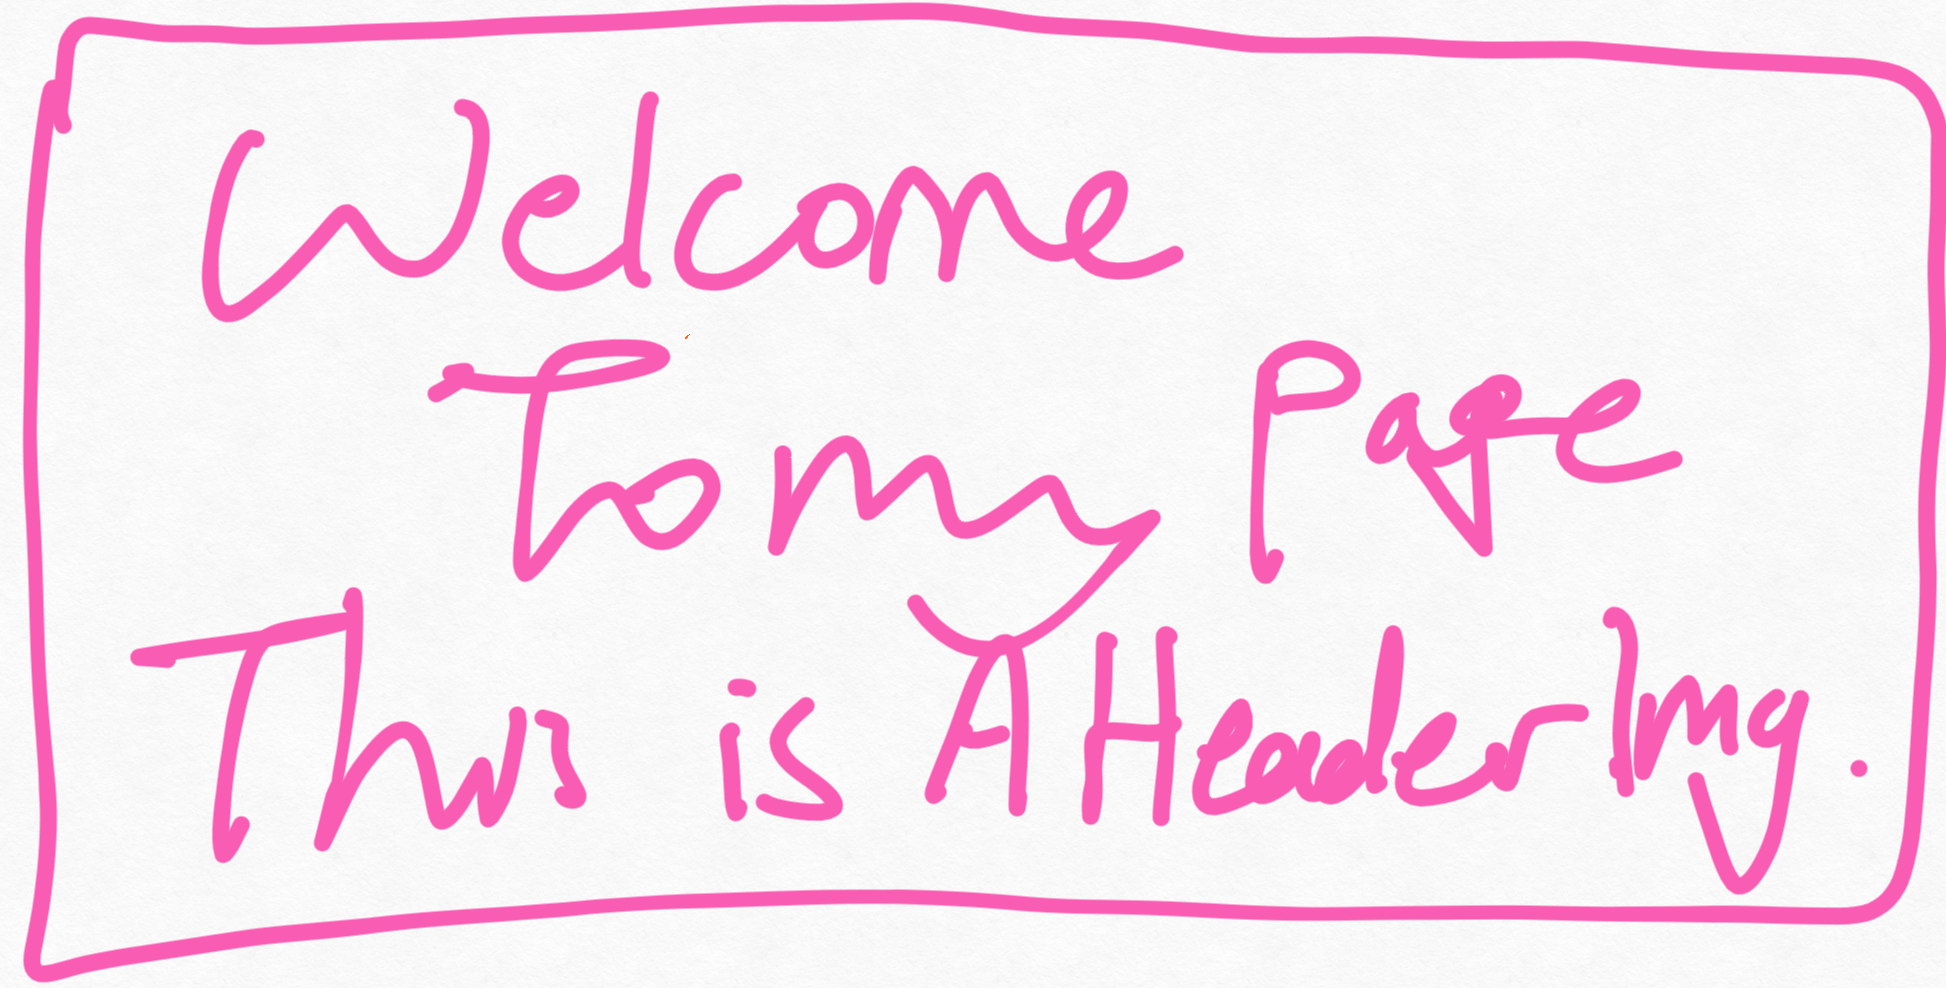 Welcome
To my Page
This is A Header Img.